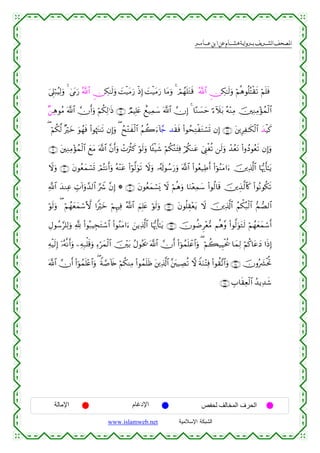 المصحف الشريف برواية هشام عن ابن عامر
فَلَمْ تَقْتُلُوهُمْ وَلَٰكِنَّ ٱللَّهَ قَتَلَهُمْ ۚ وَمَا رَمَيْتَ إِذْ رَمَيْتَ وَلَٰكِنَّ ٱللَّهَ رَمَىٰ ۚ وَلِيُبْلِيَ
ٱلْمُؤْمِنِينَ مِنْهُ بَلَآءً حَسَنًا ۚ إِنَّ ٱللَّهَ سَمِيعٌ عَلِيمٌ ۝ ذَٰلِكُمْ وَأَنَّ ٱللَّهَ مُوهِنٌ
كَيْدَ ٱلْكَٰفِرِينَ ۝ إِن تَسْتَفْتِحُوا۟ فَقَد جَّآءَكُمُ ٱلْفَتْحُ ۖ وَإِن تَنتَهُوا۟ فَهُوَ خَيْرٌ لَّكُمْ ۖ
وَإِن تَعُودُوا۟ نَعُدْ وَلَن تُغْنِيَ عَنكُمْ فِئَتُكُمْ شَيْـًٔا وَلَوْ كَثُرَتْ وَأَنَّ ٱللَّهَ مَعَ ٱلْمُؤْمِنِينَ ۝
يَٰٓأَيُّهَا ٱلَّذِينَ ءَامَنُوٓا۟ أَطِيعُوا۟ ٱللَّهَ وَرَسُولَهُۥ وَلَا تَوَلَّوْا۟ عَنْهُ وَأَنتُمْ تَسْمَعُونَ ۝ وَلَا
تَكُونُوا۟ كَٱلَّذِينَ قَالُوا۟ سَمِعْنَا وَهُمْ لَا يَسْمَعُونَ ۝ ۞ إِنَّ شَرَّ ٱلدَّوَآبِّ عِندَ ٱللَّهِ
ٱلصُّمُّ ٱلْبُكْمُ ٱلَّذِينَ لَا يَعْقِلُونَ ۝ وَلَوْ عَلِمَ ٱللَّهُ فِيهِمْ خَيْرًا لَّأَسْمَعَهُمْ ۖ وَلَوْ
أَسْمَعَهُمْ لَتَوَلَّوا۟ وَّهُم مُّعْرِضُونَ ۝ يَٰٓأَيُّهَا ٱلَّذِينَ ءَامَنُوا۟ ٱسْتَجِيبُوا۟ لِلَّهِ وَلِلرَّسُولِ
إِذَا دَعَاكُمْ لِمَا يُحْيِيكُمْ ۖ وَٱعْلَمُوٓا۟ أَنَّ ٱللَّهَ يَحُولُ بَيْنَ ٱلْمَرْءِ وَقَلْبِهِۦ وَأَنَّهُۥٓ إِلَيْهِ
تُحْشَرُونَ ۝ وَٱتَّقُوا۟ فِتْنَةً لَّا تُصِيبَنَّ ٱلَّذِينَ ظَلَمُوا۟ مِنكُمْ خَآصَّةً ۖ وَٱعْلَمُوٓا۟ أَنَّ ٱللَّهَ
شَدِيدُ ٱلْعِقَابِ ۝
الحرف المخالف لحفص الإدغام الإمالة
الشبكة الإسلامية www.islamweb.net